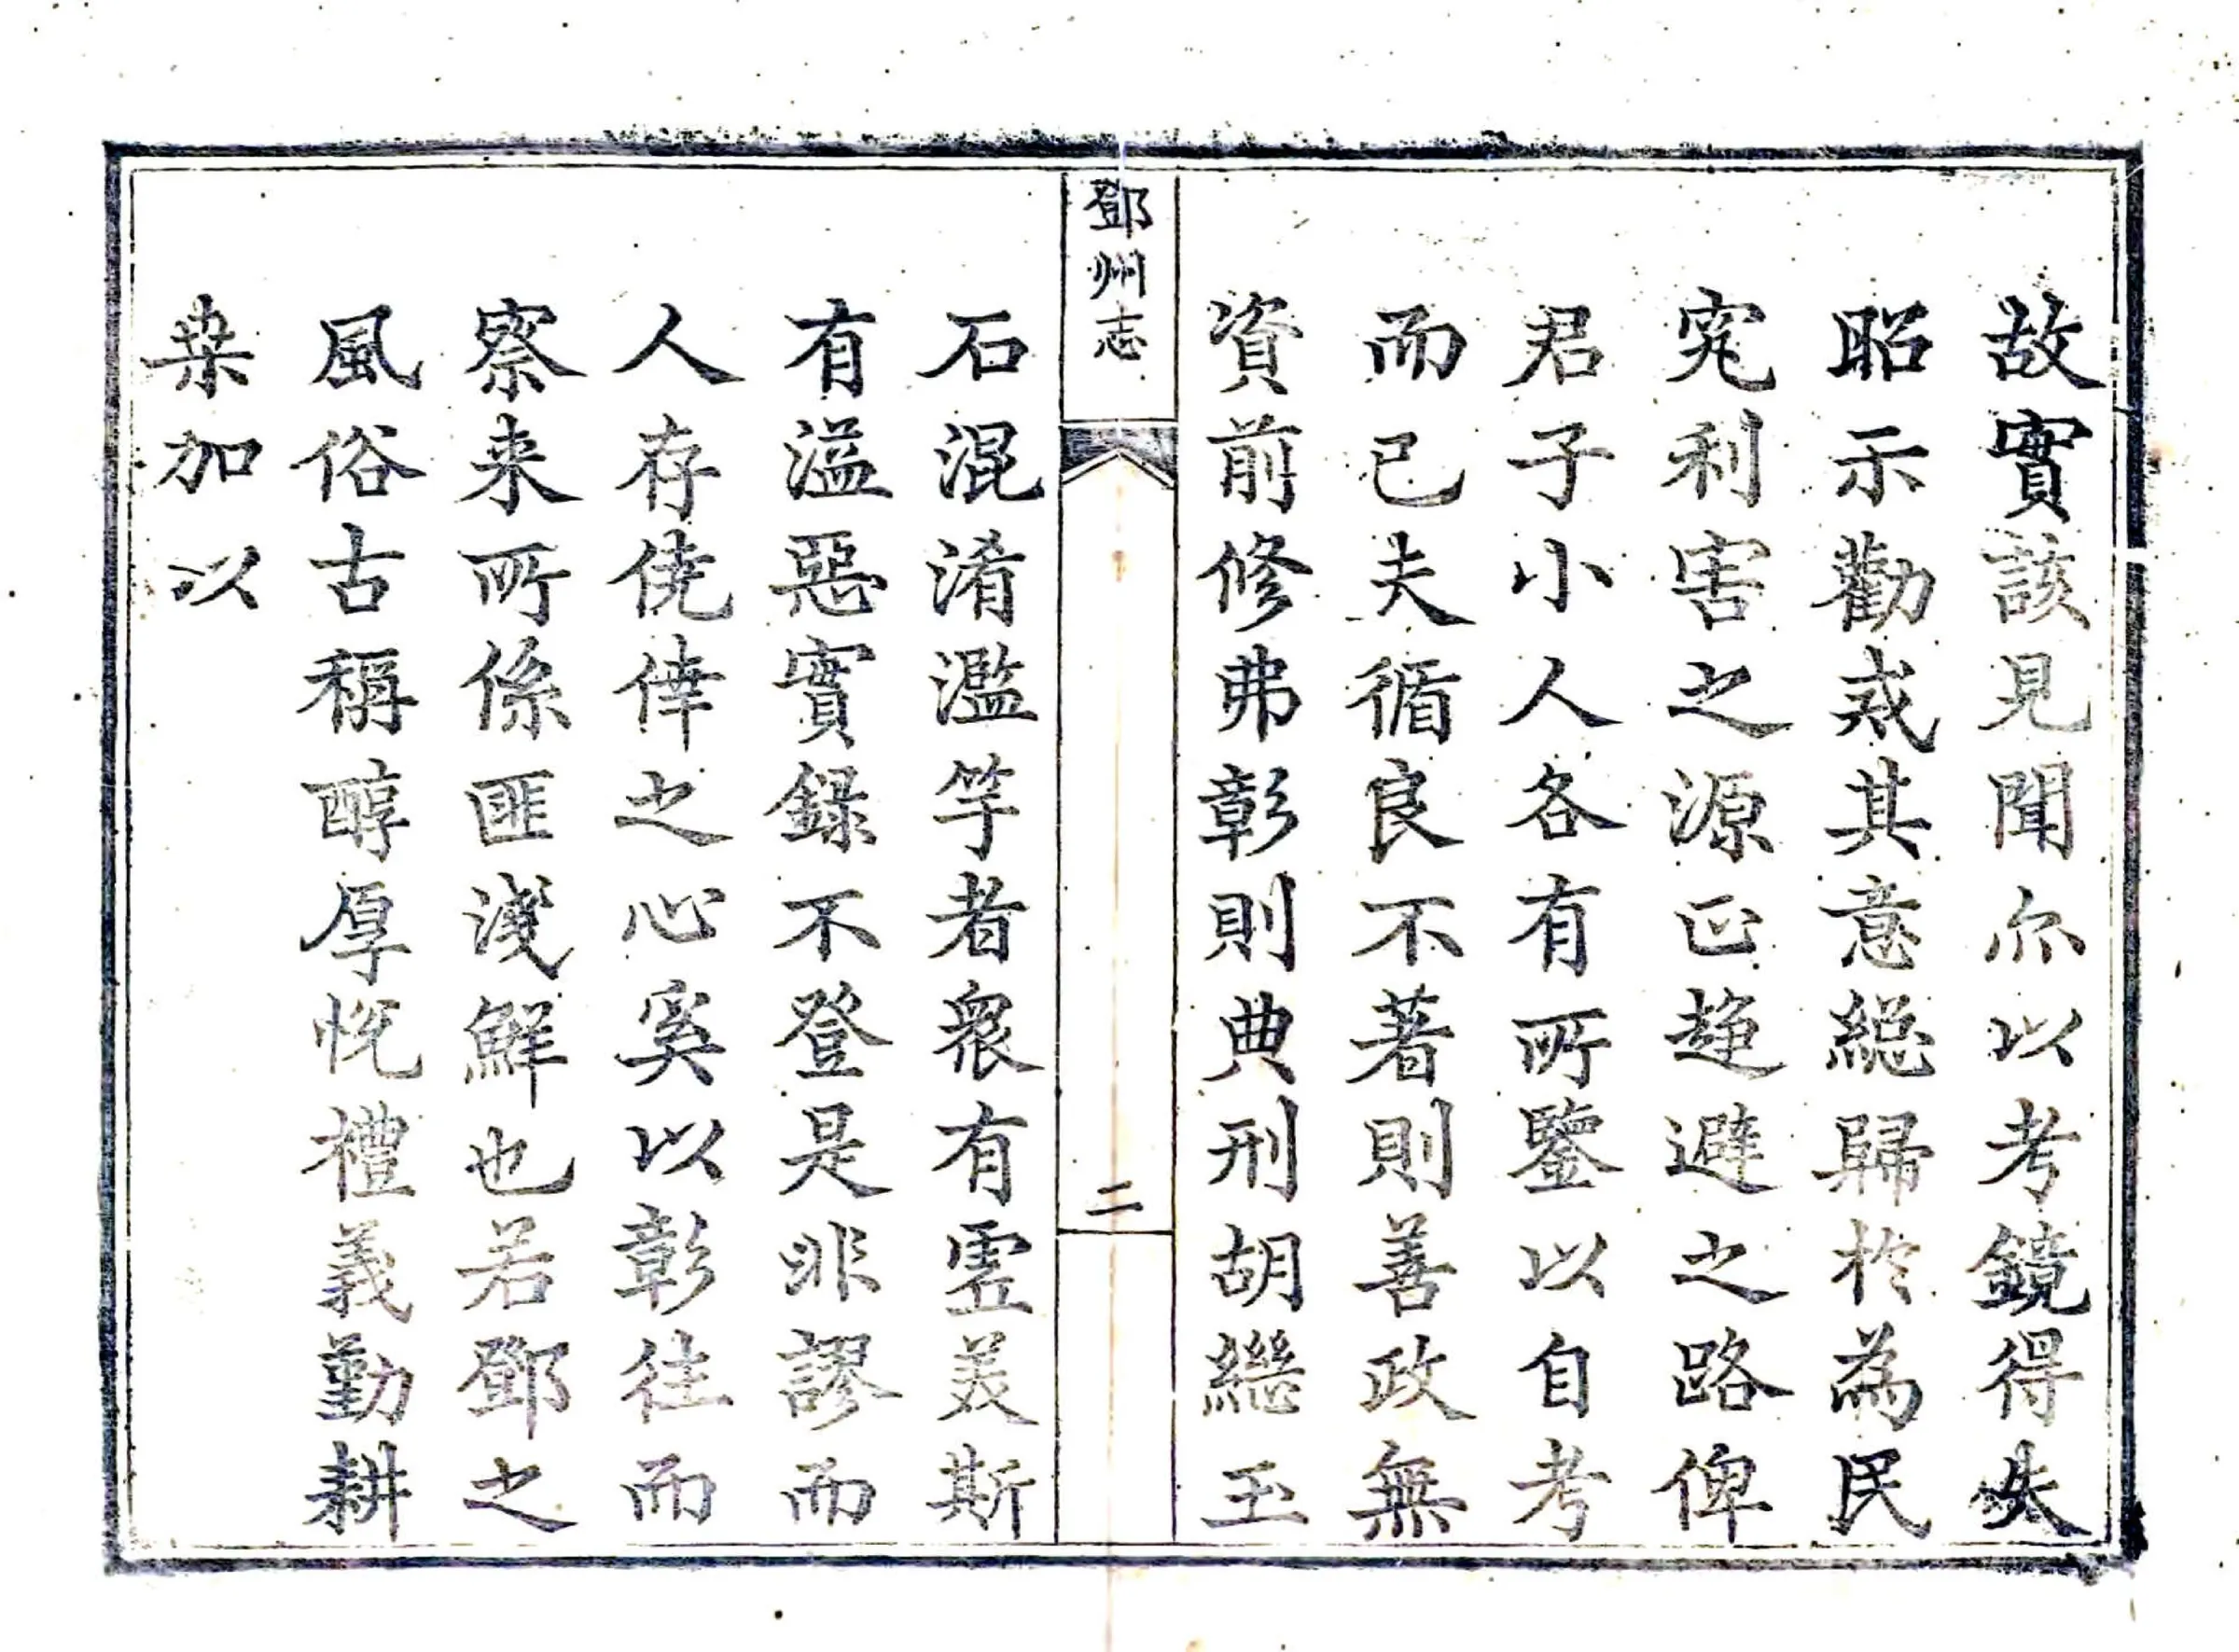 故實該見聞亦以考鏡得失
昭示勸戒其意緫歸於為民
究利害之源正趍避之路俾
君子小人各有所鑒以自考
而已夫循良不著則善政無
資前修弗彰則典刑胡繼玉
鄧州志
二
石混淆濫竽者衆有虚美斯
有溢惡實錄不登是非謬而
人存僥倖之心奚以彰往而
察来所係匪淺鮮也若鄧之
風俗古稱醇厚恱禮義勤耕
桒加以